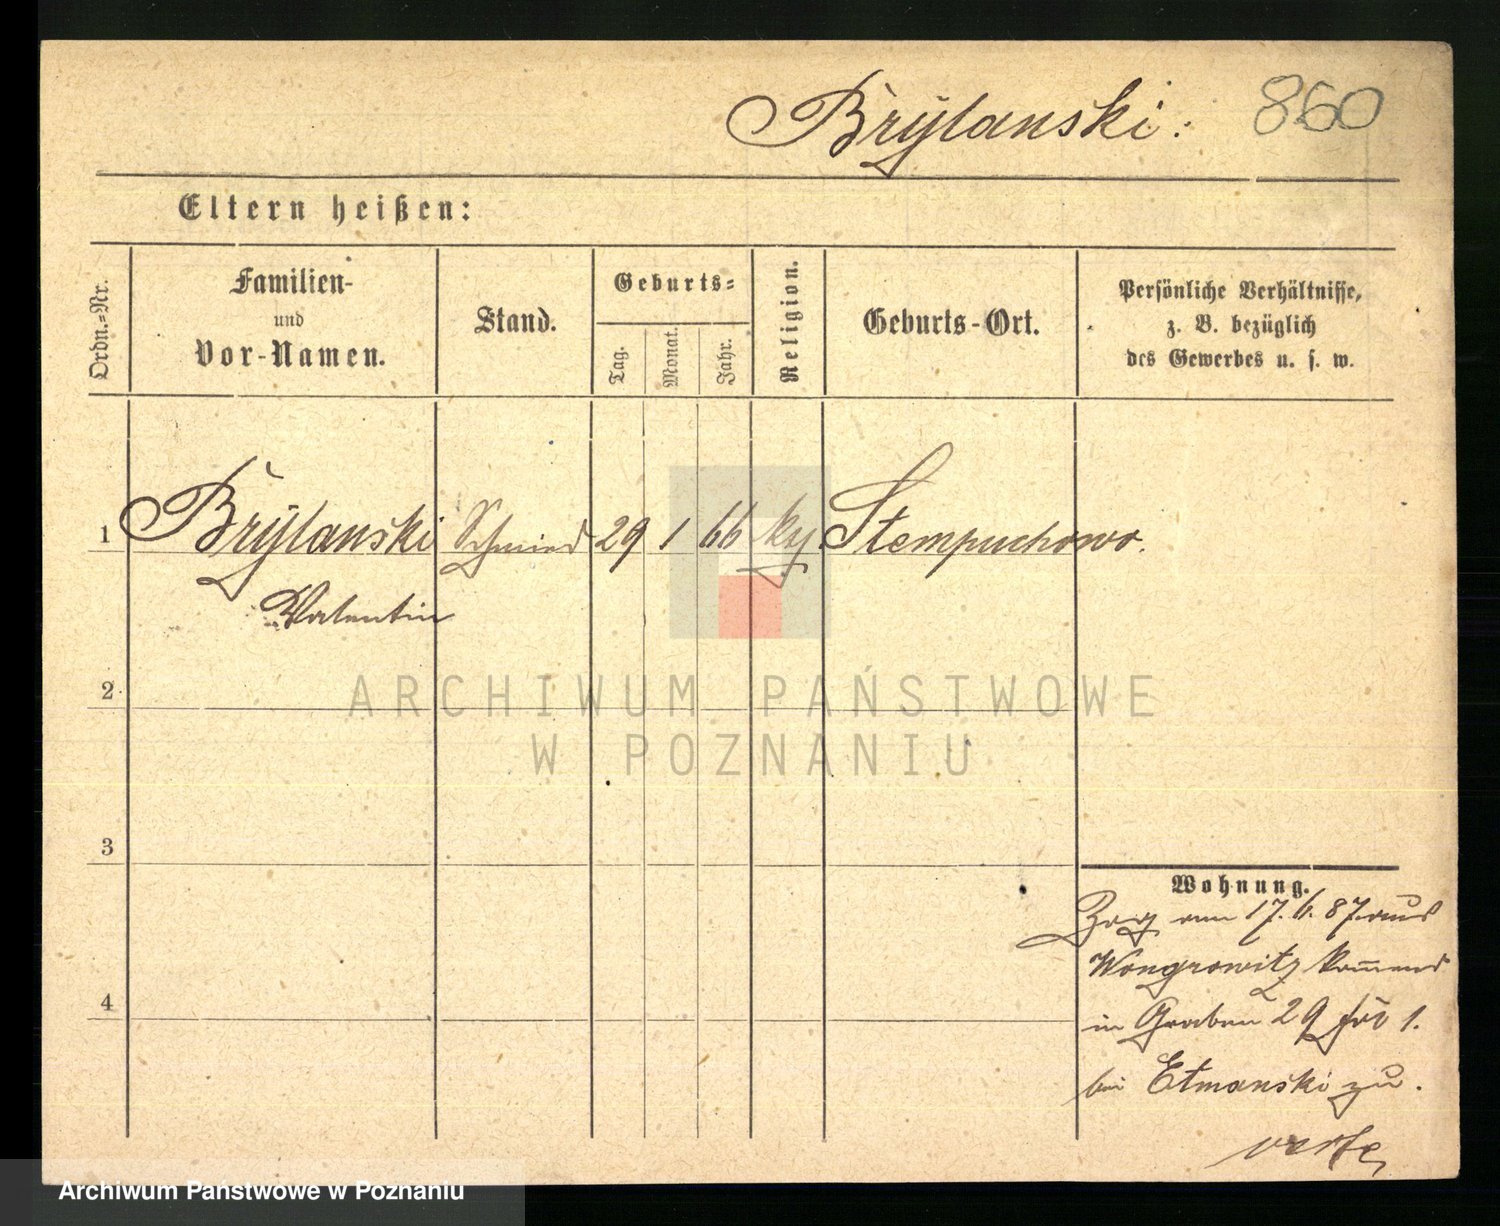 Brylanski. 860
Eltern heißen:
Ordn.-Nr.
Familien-
und
Vor-Namen.
Stand.
Geburts-
Tag.
Monat.
Jahr.
Religion.
Geburts-Ort.
Persönliche Verhältnisse,
z. B. bezüglich
des Gewerbes u. s. w.
1 Brylanski Schmied 29 1 66 Stempuchowo.
Valentin
2
3
4
Wohnung.
Zog am 17. 6. 87 aus
Wongrowitz kommend
in Graben 29 1.
bei Etmanski zu.
ARCHIWUM PAŃSTWOWE
W POZNANIU
Archiwum Państwowe w Poznaniu